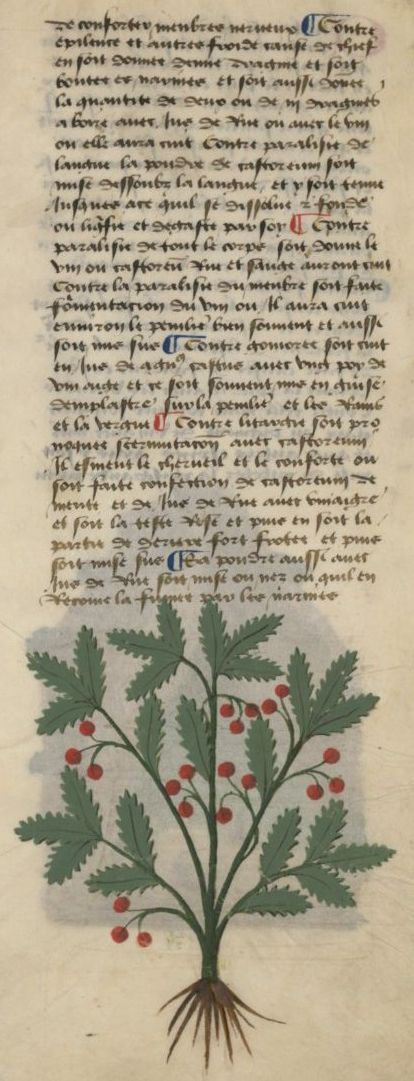 de conforter menbres nerveux ¶ Contre
epilence et autres froide cause de chief
en soit donnee demie dragme et soit
boutee es narines et soit aussi donee
la quantite de deux ou de iii dragmes
a boire avec Jus de Rue ou avec le vin
ou elle aura cuit Contre paralisie de
langue la poudre de castoreum soit
mise dessoubz la langue et y soit tenue
Jusques ace quil se dissolue & fonde
ou liqfie et degaste par soy ¶ Contre
paralisie de tout le corps soit donne le
vin ou castoreu Rue et sauge auront cuit
Contre la paralisie du menbre soit faite
fomentacion du vin ou Il aura cuit
environ le penilie bien souvent et aussi
soit mis sus ¶ Contre gomoree soit cuit
en Jus de agnus castus avec ung poy de
vin aigre et ce soit souvent mis en guise
demplastre sur la penilie et les Rains
et la vergue ¶ Contre litargie soit pro
noquee avec castoreum
Il esment le cherveil et le conforte ou
soit faite confection de castoreum de
mente et de Jus de Rue avec vinaigre
et soit la teste Rese et puis en soit la
partie de deriere fort frotee et puis
soit mise sus ¶ La poudre aussi avec
Jus de Rue soit mise ou nez ou quil en
Recoive la fumee par les narines